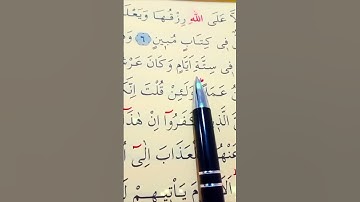 لَّا عَلَى اللّٰهِ رِزْقُهَا وَيَعْلَ
فٖى كِتَابٍ مُبٖينٍ ﴿٦﴾ وَهُ
فٖى سِتَّةِ اَيَّامٍ وَكَانَ عَرْ
عَمَلًا وَلَئِنْ قُلْتَ اِنَّكُ
الَّذٖ كَفَرُٓوا اِنْ هٰذَٓا
عَنْهُ الْعَذَابَ اِلٰٓى اُ
يَأْتٖيهِمْ